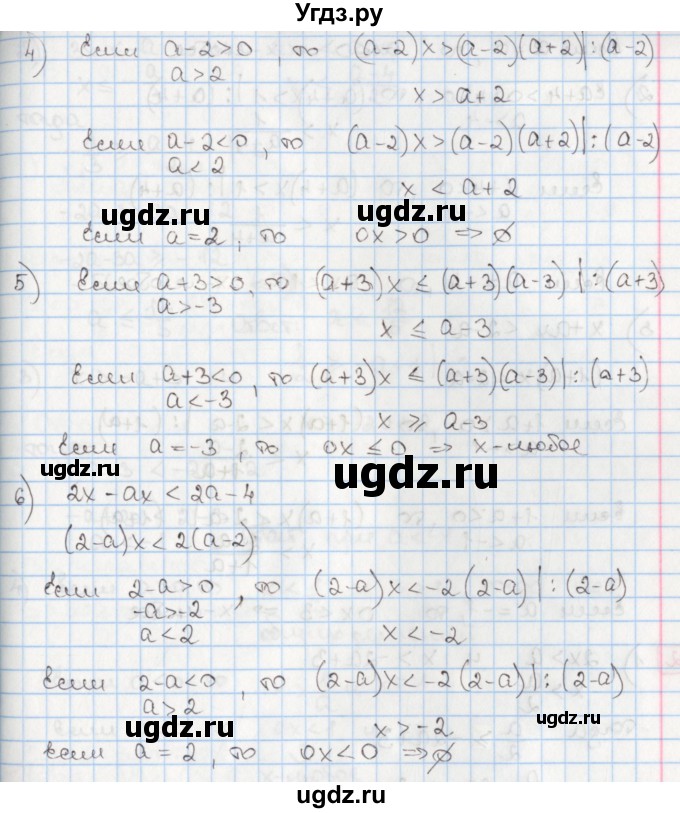 Угдз.ру
4) Если a-2>0, то (a-2)x>(a-2)(a+2)|:(a-2)
a>2
x>a+2
Если a-2<0, то (a-2)x>(a-2)(a+2)|:(a-2)
a<2
x<a+2
ugdz.ru ugdz.ru
Если a=2, то 0x>0 ⇒ ∅
5) Если a+3>0, то (a+3)x ≤ (a+3)(a-3)|:(a+3)
a>-3
x ≤ a-3
Если a+3<0, то (a+3)x ≤ (a+3)(a-3)|:(a+3)
a<-3
x ⩾ a-3
Если a=-3, то 0x ≤ 0 ⇒ x-любое
ugdz.ru ugdz.ru
6) 2x-ax<2a-4
(2-a)x<2(a-2)
Если 2-a>0, то (2-a)x<-2(2-a)|:(2-a)
-a>-2
a<2 x<-2
Если 2-a<0, то (2-a)x<-2(2-a)|:(2-a)
a>2
ugdz.ru
ugdz.ru x>-2
Если a=2, то 0x<0 ⇒ ∅
ugdz.ru